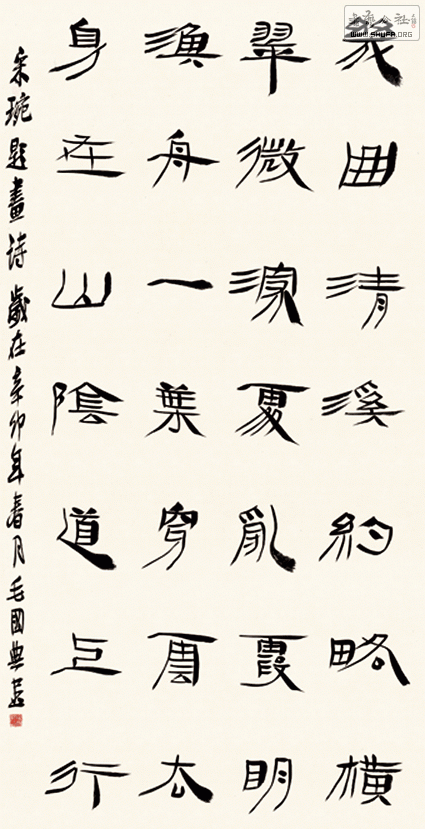 幾曲清溪約略橫
翠微深處亂霞明
漁舟一葉穿雲去
身在山陰道上行
宋琬題畫詩 歲在辛卯年春月毛國典書
WWW.SHUFA.ORG